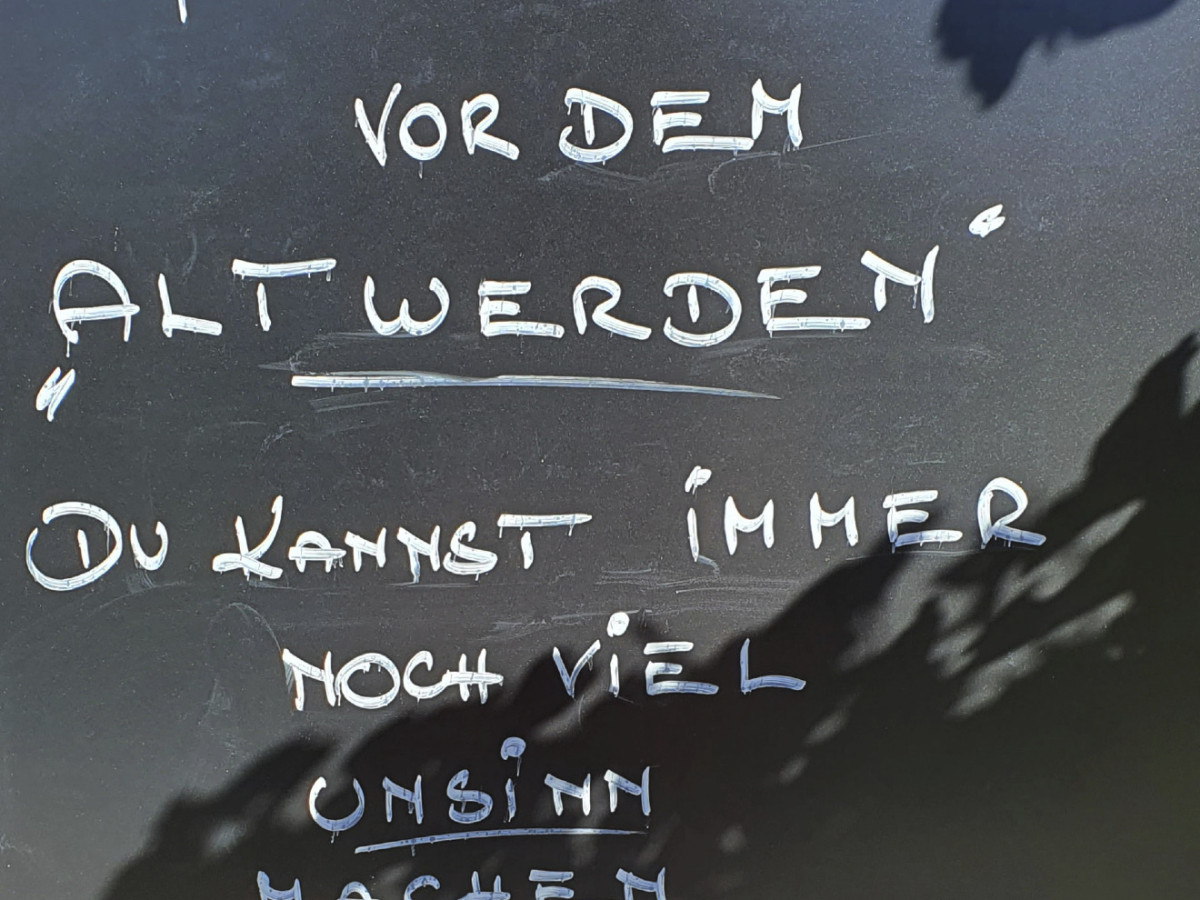 VOR DEM
„ALT WERDEN“
DU KANNST IMMER
NOCH VIEL
UNSINN
MACHEN